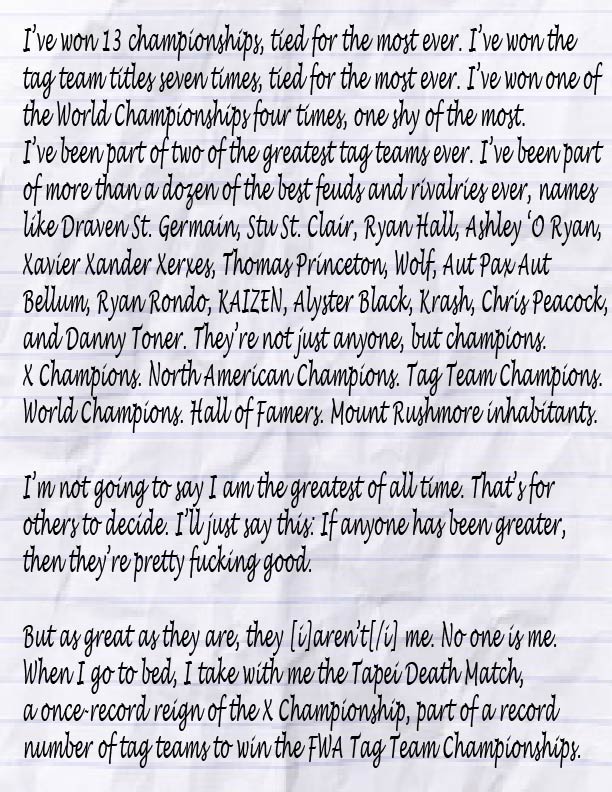 I've won 13 championships, tied for the most ever. I've won the
tag team titles seven times, tied for the most ever. I've won one of
the World Championships four times, one shy of the most.
I've been part of two of the greatest tag teams ever. I've been part
of more than a dozen of the best feuds and rivalries ever, names
like Draven St. Germain, Stu St. Clair, Ryan Hall, Ashley ‘O Ryan,
Xavier Xander Xerxes, Thomas Princeton, Wolf, Aut Pax Aut
Bellum, Ryan Rondo, KAIZEN, Alyster Black, Krash, Chris Peacock,
and Danny Toner. They're not just anyone, but champions.
X Champions. North American Champions. Tag Team Champions.
World Champions. Hall of Famers. Mount Rushmore inhabitants.
I'm not going to say I am the greatest of all time. That's for
others to decide. I'll just say this: If anyone has been greater,
then they're pretty fucking good.
But as great as they are, they [i]aren't[/i] me. No one is me.
When I go to bed, I take with me the Tapei Death Match,
a once-record reign of the X Championship, part of a record
number of tag teams to win the FWA Tag Team Championships.